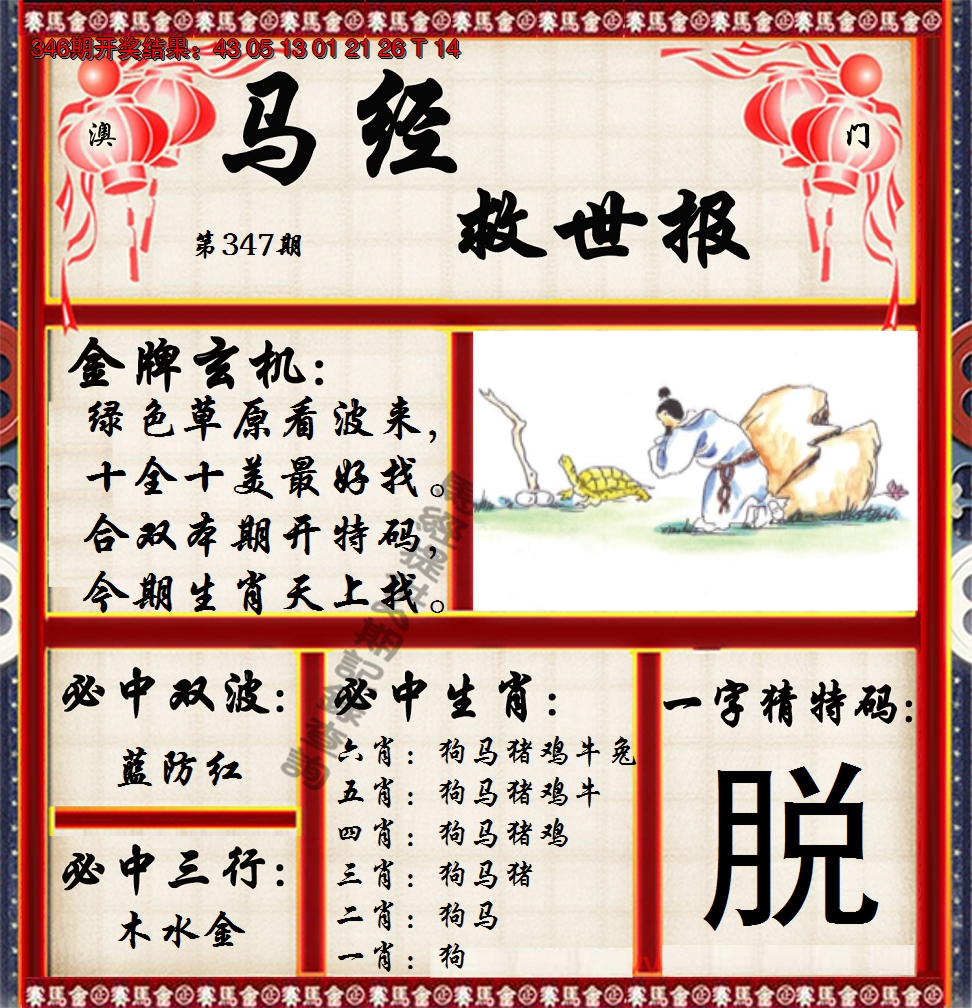 賽馬會 賽馬會 賽馬會 賽馬會 賽馬會 賽馬會 賽馬會 賽馬會
346期开奖结果：43 05 13 01 21 26 T 14
澳 门
马经
救世报
第347期
金牌玄机：
绿色草原看波来，
十全十美最好找。
合双本期开特码，
今期生肖天上找。
必中双波：
蓝防红
必中三行：
木水金
必中生肖：
六肖：狗马猪鸡牛兔
五肖：狗马猪鸡牛
四肖：狗马猪鸡
三肖：狗马猪
二肖：狗马
一肖：狗
一字猜特码：
脱